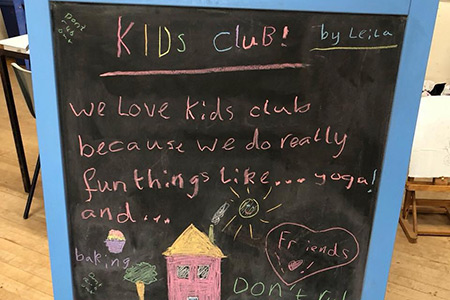 Don't
rub
out
KIDs club!
by Leila
we Love Kids club
because we do really
fun things like... yoga!
and...
baking
Friends
DON'T rub